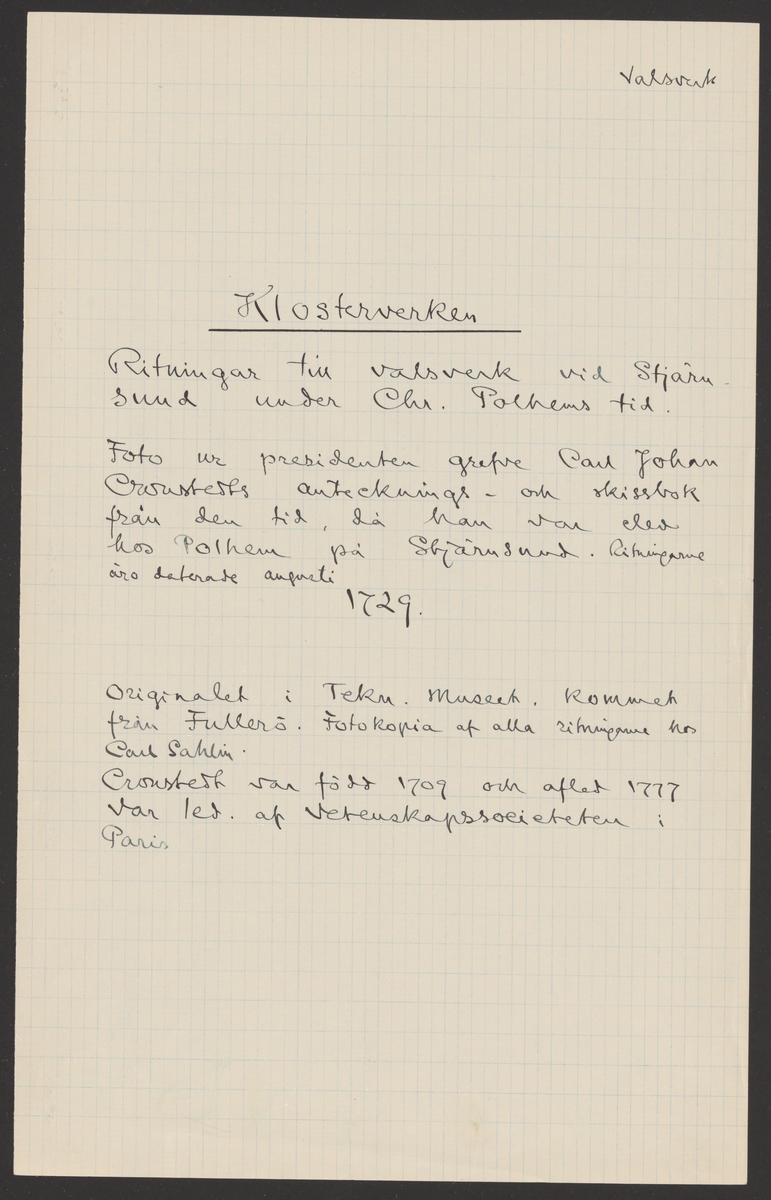 Valsverk
Klosterverken
Ritningar till valsverk vid Stjärn-
sund under Chr. Polhems tid.
Foto ur presidenten grefve Carl Johan
Cronstedts antecknings- och skissbok
från den tid, då han var elev
hos Polhem på Stjärnsund. Ritningarne
äro daterade augusti
1729.
Originalet i Tekn. Museet. Kommet
från Fullerö. Fotokopia af alla ritningarne hos
Carl Sahlin.
Cronstedt var född 1709 och afled 1777
Var led. af Vetenskapssocieteten i
Paris